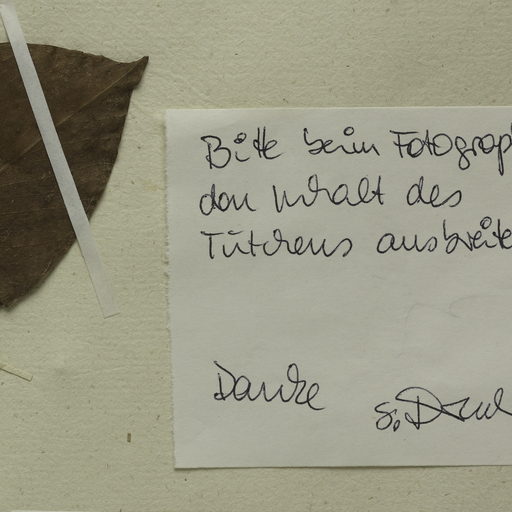 Bitte beim Fotograp
den Inhalt des
Tütchens ausbreite
Danke